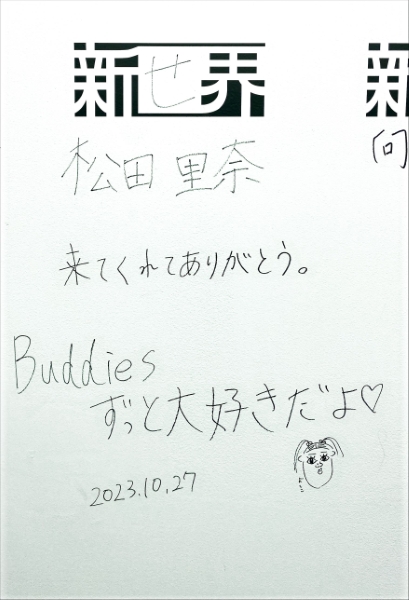 新世界
新
松田里奈
来てくれてありがとう。
Buddies
ずっと大好きだよ♡
2023.10.27